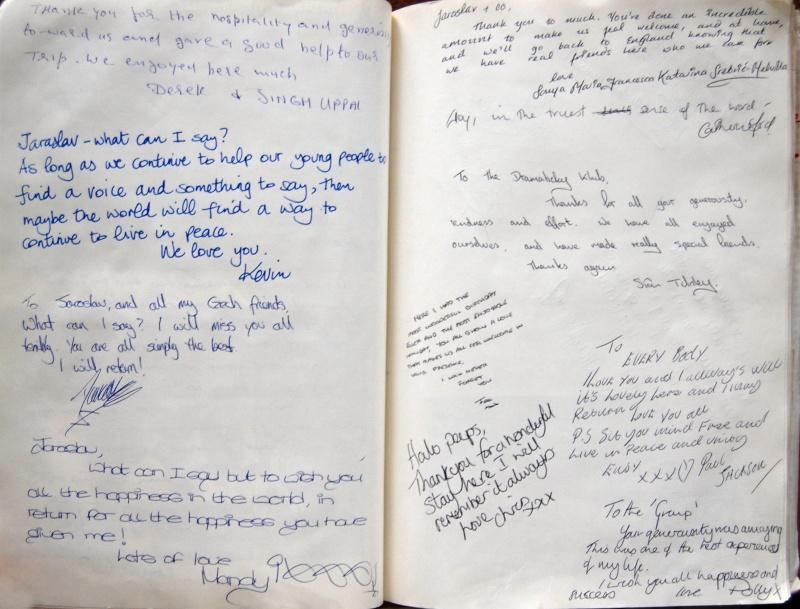 Thank you for the hospitality and generosity
toward us and gave a good help to our
Trip. We enjoyed here much
Derek & SINGH UPPAL
Jaraslav - what can I say?
As long as we continue to help our young people to
find a voice and something to say, then
maybe the world will find a way to
continue to live in peace.
We love you.
Kevin
To Jaroslav, and all my Czech friends,
What can I say? I will miss you all
terribly. You are all simply the best.
I will return!
Jaraslav,
What can I say but to wish you
all the happiness in the world, in
return for all the happiness you have
given me!
Lots of love
Mandy
Jaroslav + co,
Thank you so much. You've done an incredible
amount to make us feel welcome, and at home,
and we'll go back to England knowing that
we have real friends here who we care for
love
Sonya Maria Francesca Katarina
in the truest sense of the word -
To the Dramaticky Klub,
Thanks for all your generousity,
kindness and effort. We have all enjoyed
ourselves, and have made really special friends.
Thanks again
HERE I HAD THE
MOST WONDERFUL BIRTHDAY
EVER AND THE MOST ENJOYABLE
HOLIDAY, YOU ALL SHOW A LOVE
THAT MAKES US ALL FEEL WELCOME IN
YOUR PRESENCE.
I WILL NEVER
FORGET
YOU
To
EVERY BODY
I love you and I allway's will
it's lovely here and I may
Return love you all
P.S Set you mind Free and
Live in Peace and
Easy xxx♡ Paul
JACKSON
Halo peeps,
Thankyou for a wonderful
stay here I will
remember it always
love chris xxx
To the 'Group'
Your generousity was amazing
This was one of the best experiences
of my life.
I wish you all happiness and
success love Holly x